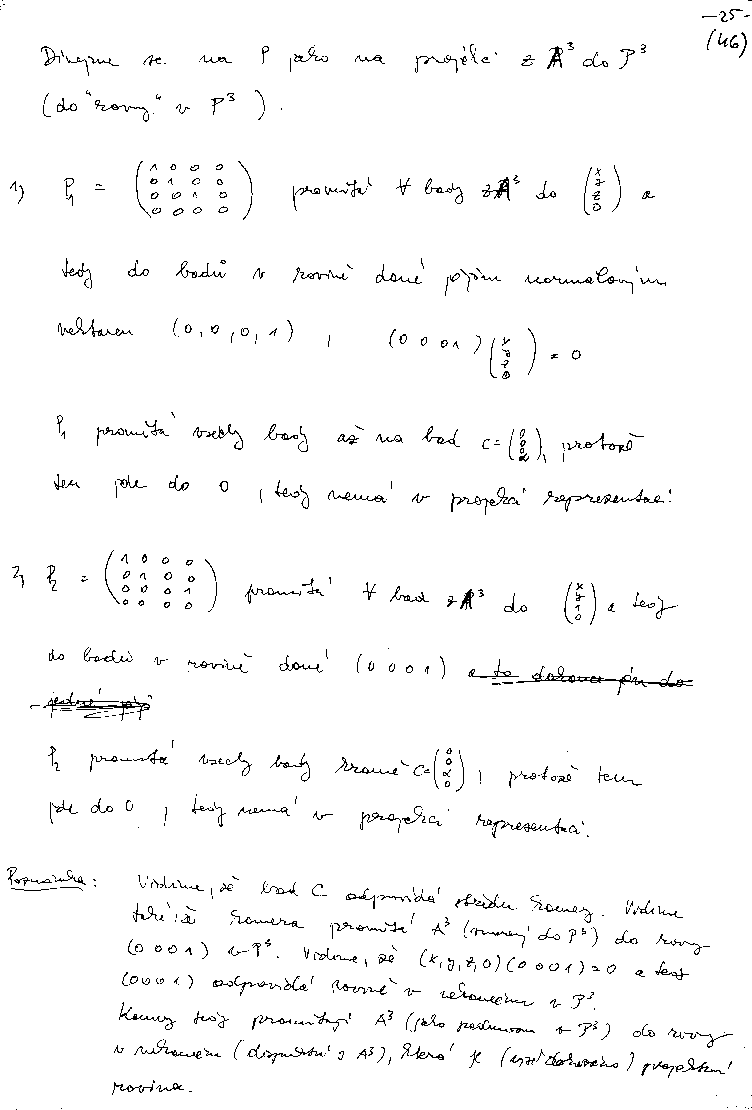 -25-
(46)
Dívejme se na P jako na projekci z A³ do P³
(do "roviny" v P³).
1) P₁ = (1 0 0 0; 0 1 0 0; 0 0 1 0; 0 0 0 0) promítá ∀ body z A³ do (x y z 0) a
tedy do bodů v rovině dané jejím normálovým
vektorem (0,0,0,1), (0 0 0 1)(x y z 0) = 0
P₁ promítá všechy body až na bod C=(0 0 0 α), protože
ten jde do 0, tedy nemá v projekci representaci!
2) P₂ = (1 0 0 0; 0 1 0 0; 0 0 0 1; 0 0 0 0) promítá ∀ bod z A³ do (x y 1 0) a tedy
do bodů v rovině dané (0 0 0 1) a to dokonce jen do
jedné
P₂ promítá všechy body kromě C=(0 0 α 0), protože ten
jde do 0, tedy nemá v projekci representaci.
Poznámka: Vidíme, že bod C odpovídá středu kamery. Vidíme
také že kamera promítá A³ (vnořený do P³) do roviny
(0 0 0 1) v P³. Vidíme, že (x,y,z,0)(0 0 0 1)=0 a tedy
(0 0 0 1) odpovídá rovině v nekonečnu v P³.
Kamery tedy promítají A³ (jako podmnožinu v P³) do roviny
v nekonečnu (disjunktní s A³), která je (výše dokázáno) projektivní
rovina.